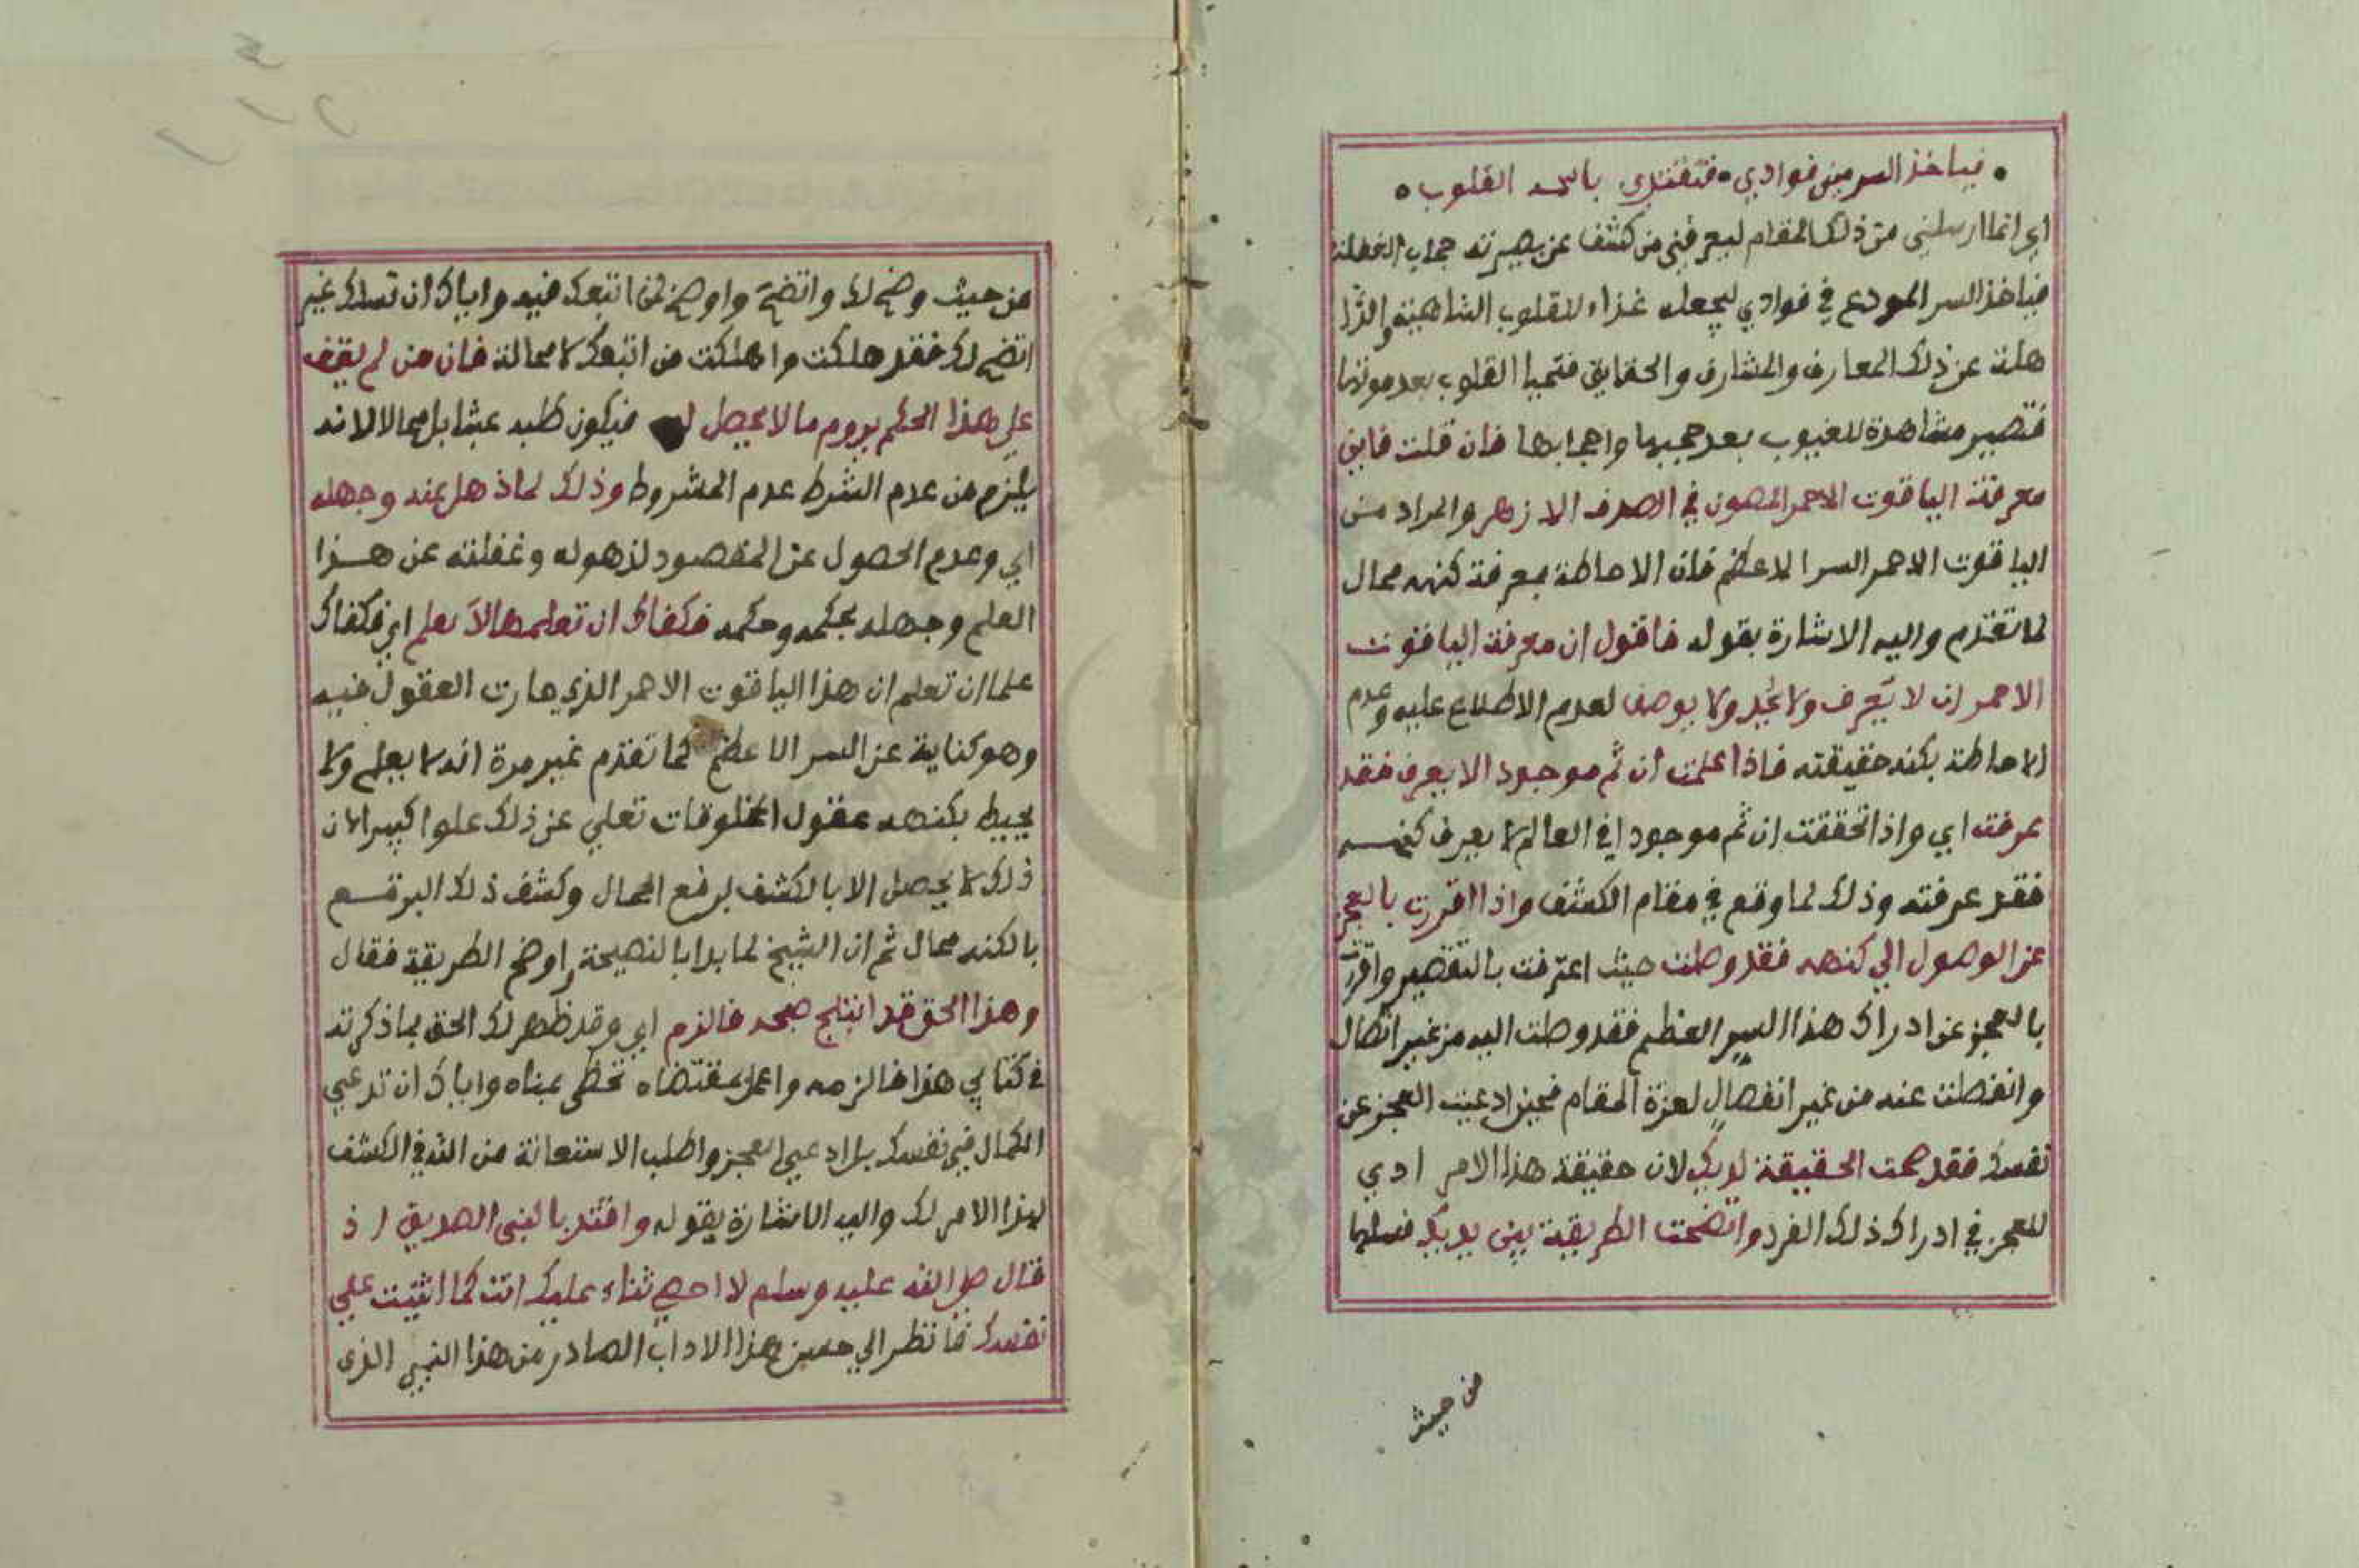 فياخذ السر من فوادي • فتغتدي باسه القلوب
اي انما ارسلني من ذلك المقام ليعرفني من كشف عن بصيرته حجاب الغفلة
فياخذ السر المودع في فوادي ليجعله غذاء للقلوب الشاهية والذا
هلة عن ذلك المعارف والمشارق والحقايق فتحيا القلوب بعد موتها
فتصير مشاهدة للغيوب بعد حجبها واحجابها فان قلت فاين
معرفة الياقوت الاحمر المصون في الصدف الازهر والمراد من
الياقوت الاحمر السر الاعظم فان الاحاطة بمعرفة كنهه محال
لما تقدم واليه الاشارة بقوله فاقول ان معرفة الياقوت
الاحمر ان لا يعرف ولا يحد ولا يوصف لعدم الاطلاع عليه وعدم
الاحاطة بكنه حقيقته فاذا علمت ان ثم موجود الا يعرف فقد
عرفت اي واذا تحققت ان ثم موجودا في العالم لا يعرف كنهه
فقد عرفته وذلك لما وقع في مقام الكشف واذا اقررت بالعجز
عن الوصول الي كنهه فقد وصلت حيث اعترفت بالتقصير واقررت
بالعجز عن ادراك هذا السر العظيم فقد وصلت اليه من غير اتصال
وانفصلت عنه من غير انفصال لعزة المقام فحين ادعيت العجز عن
نفسك فقد صحت الحقيقة لديك لان حقيقة هذا الامر ادي
للعجز في ادراك ذلك الفرد واتضحت الطريقة بين يديك فسلها
من حيث
من حيث وضح لك واتضح واوضح لمن اتبعك فيه واياك ان تسلك غير
اتضح لك فقد هلكت واهلكت من اتبعك لا محالة فان من لم يقف
علي هذا الحكم يروم ما لا يحصل له فيكون طلبه عبثا بل محالا لانه
يلزم من عدم الشرط عدم المشروط وذلك لما ذهل عنه وجهله
اي وعدم الحصول عن المقصود لذهوله وغفلته عن هذا
العلم وجهله بحكمه وحكمه فكفاك ان تعلم هالا يعلم اي فكفاك
علما ان تعلم ان هذا الياقوت الاحمر الذي حارت العقول فيه
وهو كناية عن السر الاعظم كما تقدم غير مرة انه لا يعلم ولا
يحيط بكنهه عقول المخلوقات تعلي عن ذلك علوا كبيرا لان
ذلك لا يحصل الا بالكشف لرفع المحال وكشف ذلك البرقع
بالكنه محال ثم ان الشيخ لما بدا بالنصيحة اوضح الطريقة فقال
وهذا الحق قد انبلج صبحه فالزم اي وقد ظهر لك الحق بما ذكرته
في كتابي هذا فالزمه واعمل بمقتضاه تحظى بمناه واياك ان تدعي
الكمال في نفسك بل ادعي العجز واطلب الاستعانة من الله في الكشف
لهذا الامر لك واليه الاشارة بقوله واقتد بالنبي الصديق اذ
قال صلى الله عليه وسلم لا احصي ثناء عليك انت كما اثنيت علي
نفسك فانظر الي حسن هذا الاداب الصادر من هذا النبي الذي